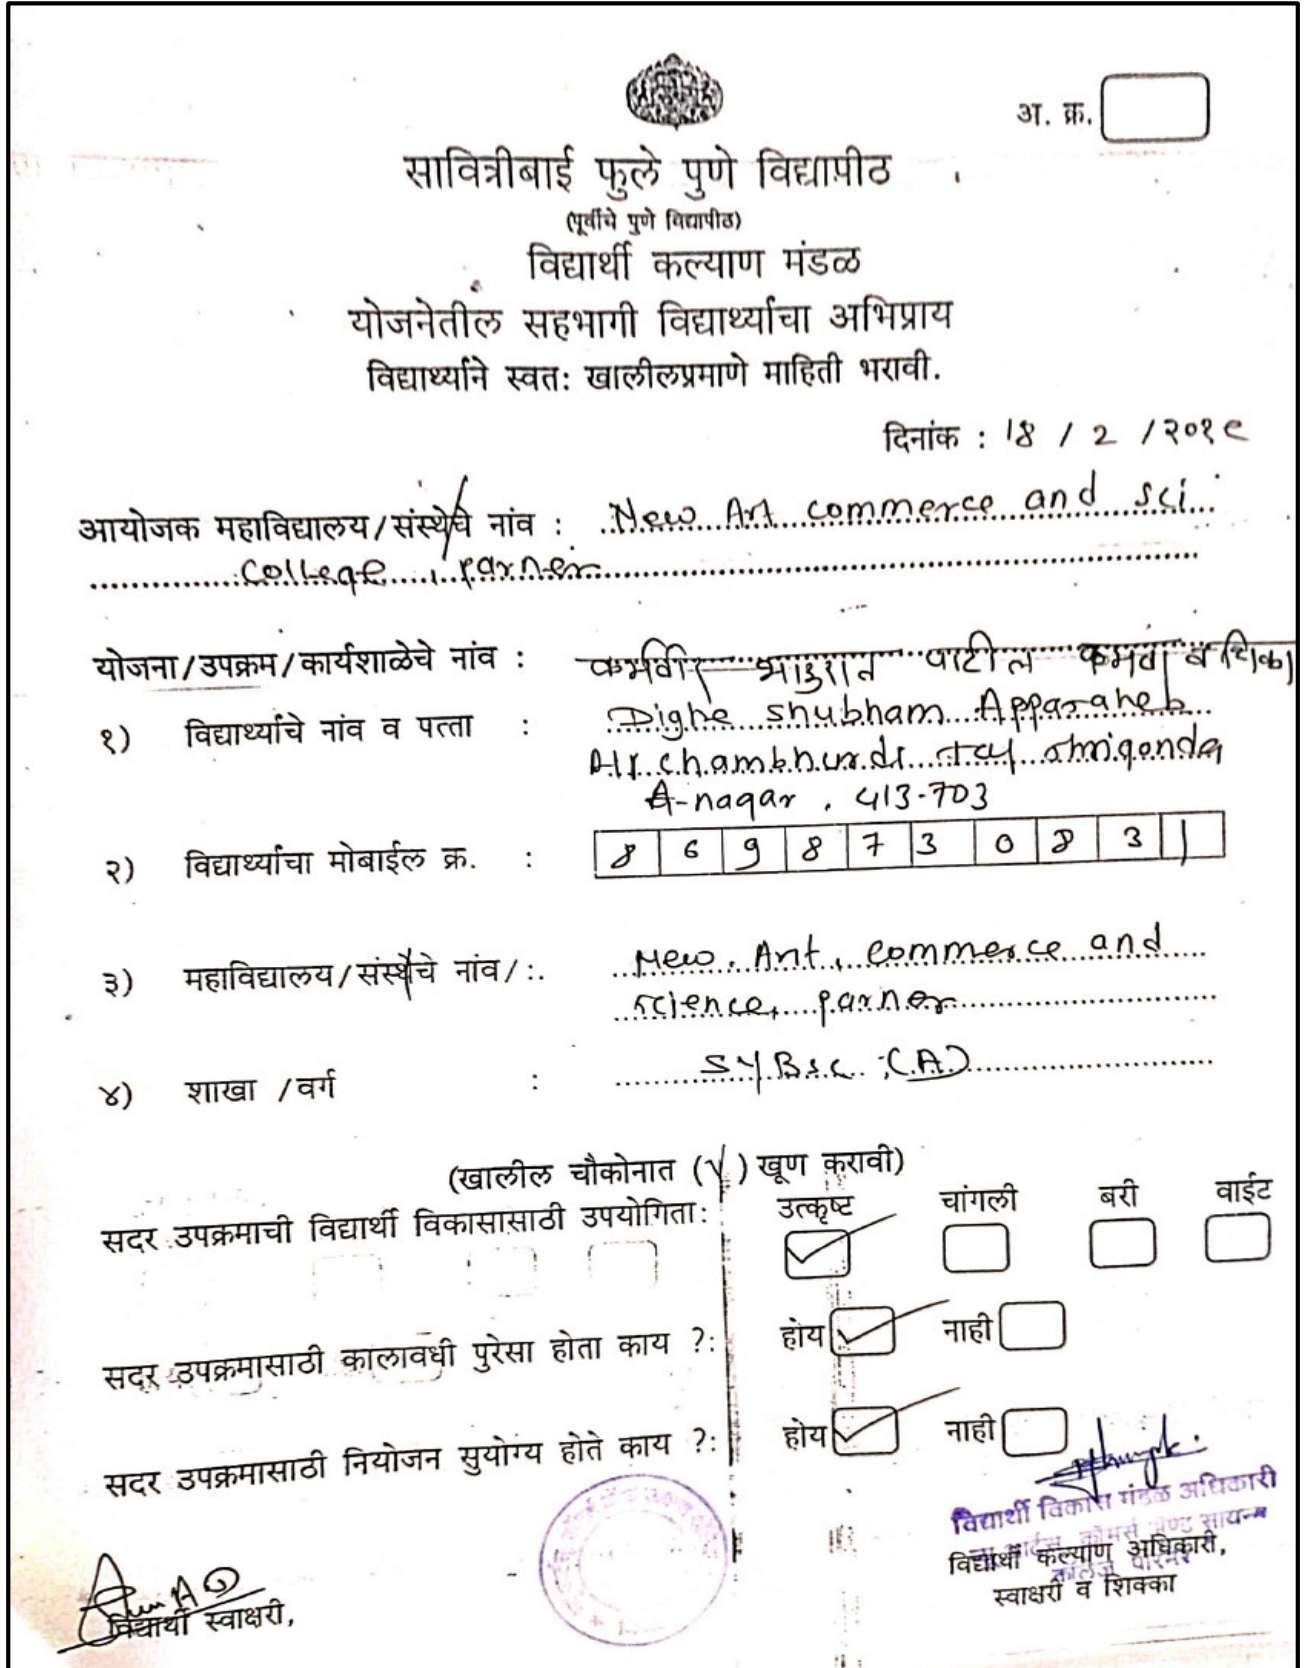 अ. क्र.
सावित्रीबाई फुले पुणे विद्यापीठ
(पूर्वीचे पुणे विद्यापीठ)
विद्यार्थी कल्याण मंडळ
योजनेतील सहभागी विद्यार्थ्याचा अभिप्राय
विद्यार्थ्याने स्वतः खालीलप्रमाणे माहिती भरावी.
दिनांक : 18 / 2 / २०१९
आयोजक महाविद्यालय/संस्थेचे नांव : New Art commerce and sci
college, parner
योजना/उपक्रम/कार्यशाळेचे नांव : कर्मवीर भाऊराव पाटील कमवा व शिका
१) विद्यार्थ्याचे नांव व पत्ता : Dighe shubham Appasaheb
At. chambhurdi tal shrigonda
A-nagar, 413-703
२) विद्यार्थ्याचा मोबाईल क्र. : 8 6 9 8 7 3 0 8 3 1
३) महाविद्यालय/संस्थेचे नांव/:. New. Art, commerce and
science, parner
४) शाखा /वर्ग : SYBsc (A)
(खालील चौकोनात (√) खूण करावी)
सदर उपक्रमाची विद्यार्थी विकासासाठी उपयोगिता: उत्कृष्ट चांगली बरी वाईट
सदर उपक्रमासाठी कालावधी पुरेसा होता काय ?: होय नाही
सदर उपक्रमासाठी नियोजन सुयोग्य होते काय ?: होय नाही
विद्यार्थी विकास मंडळ अधिकारी
विद्यार्थी कल्याण अधिकारी,
स्वाक्षरी व शिक्का
विद्यार्थी स्वाक्षरी,